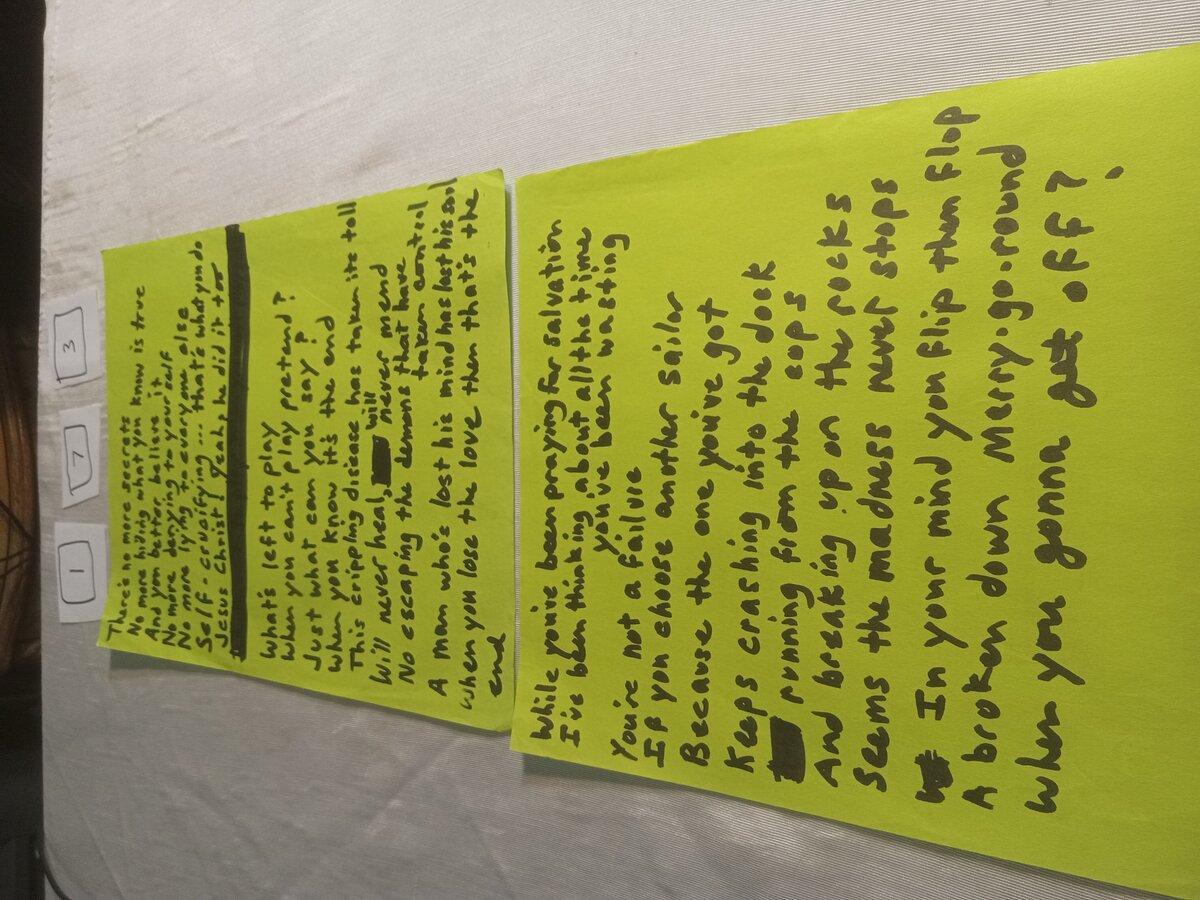 1 7 3
There's no more secrets
No more hiding what you know is true
And you better believe it
No more denying to yourself
No more lying to everyone else
Self-crucifying... that's what you do
Jesus Christ! yeah, he did it too
What's left to play
When you can't play pretend?
Just what can you say?
When you know it's the end
This crippling disease has taken its toll
Will never heal, will never mend
No escaping the demons that have
taken control
A man who's lost his mind has lost his soul
When you lose the love then that's the
end
While you've been praying for salvation
I've been thinking about all the time
you've been wasting
You're not a failure
If you choose another sailor
Because the one you've got
Keeps crashing into the dock
running from the cops
And breaking up on the rocks
Seems the madness never stops
In your mind you flip then flop
A broken down merry-go-round
When you gonna get off?